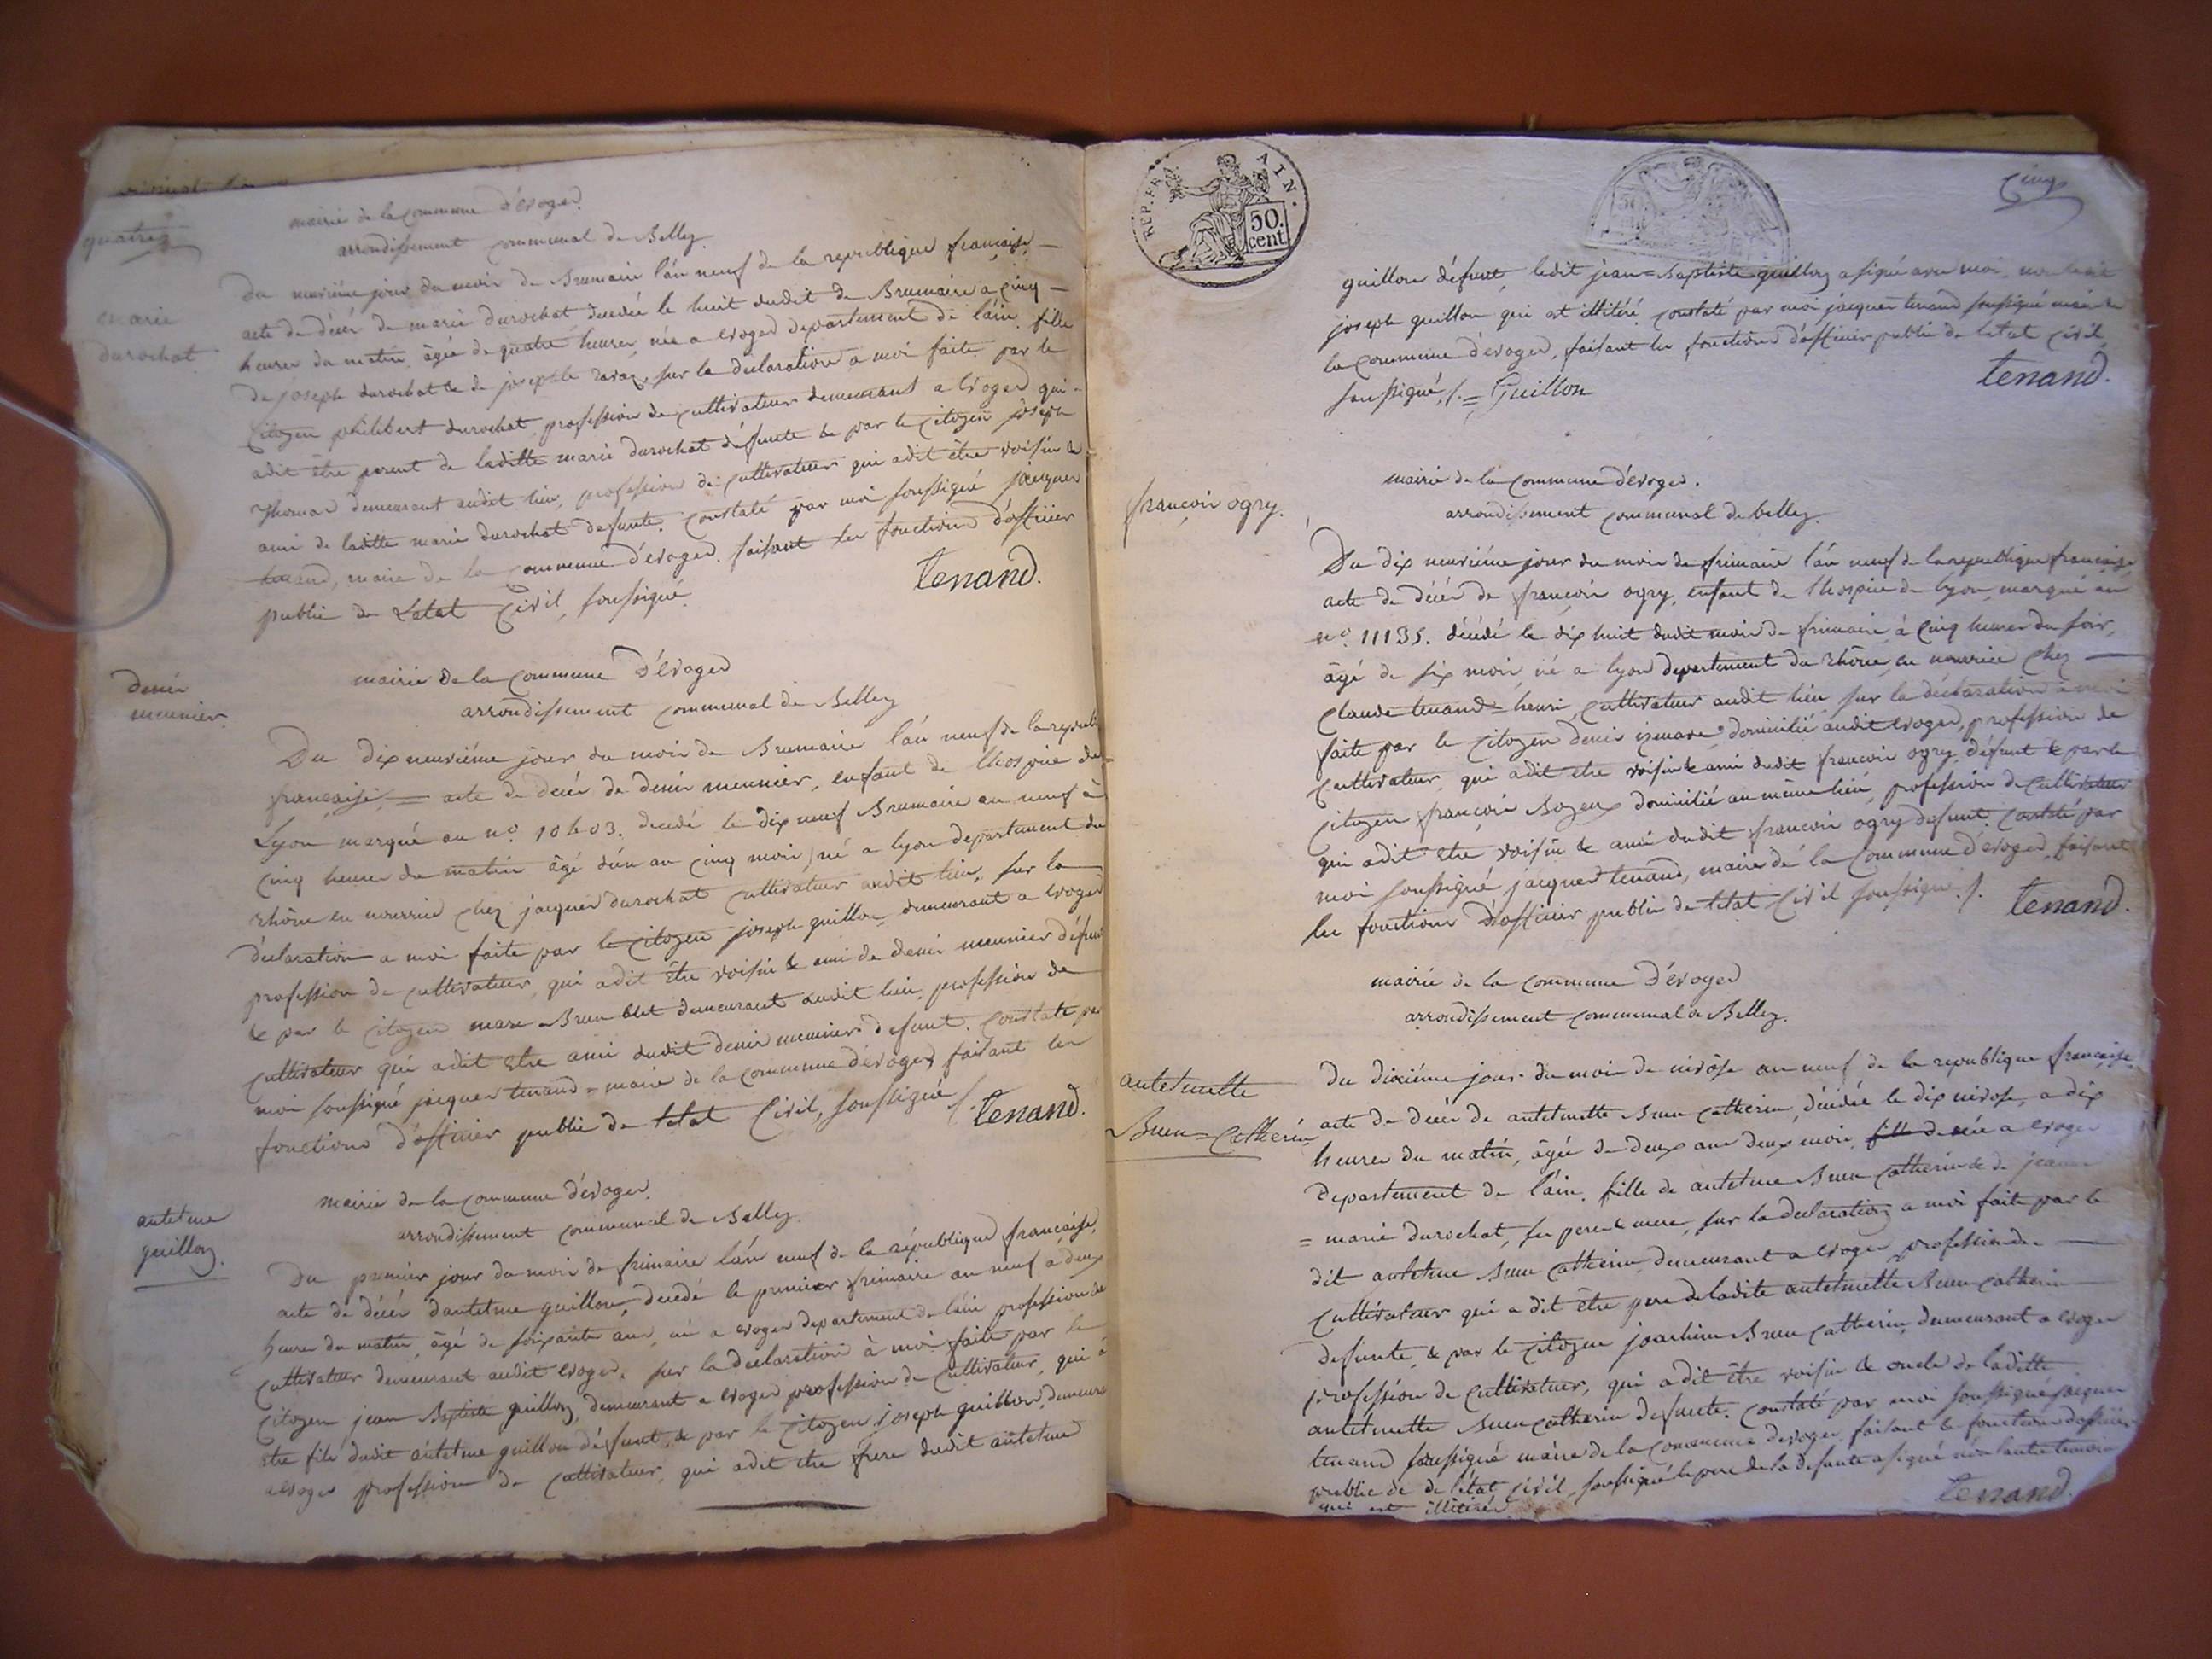 quatre
mairie de la commune d'évoges
arrondissement communal de Belley
marie
durochat
Du neuviéme jour du mois de Brumaire l'an neuf de la republique française
acte de décès de marie durochat decedée le huit dudit de Brumaire a cinq
heures du matin, âgée de quatre heures, née a evoges departement de l'ain, fille
de joseph durochat & de josephte ravaz, sur la declaration a moi faite par le
citoyen philibert durochat, profession de cultivateur demeurant a Evoges qui
adit être parent de laditte marie durochat défunte & par le citoyen joseph
Thomas demeurant audit lieu, profession de cultivateur qui adit être voisin &
ami de laditte marie durochat defunte. Constaté par moi soussigné jacques
tenand, maire de la commune d'évoges. faisant les fonctions d'officier
public de L'etat Civil, soussigné.
tenand.
denis
meunier.
mairie de la commune d'Evoges
arrondissement communal de Belley
Du dix neuviéme jour du mois de Brumaire l'an neuf de la republ
française = acte de decès de denis meunier, enfant de l'hospice de
Lyon marqué au n.o 10403. decedé le dix neuf Brumaire an neuf à
cinq heures du matin âgé d'un an cinq mois, né a lyon departement du
rhône en nourrice chez jacques durochat cultivateur audit lieu, sur la
déclaration a moi faite par le citoyen joseph guillon, demeurant a evoges
profession de cultivateur, qui adit être voisin & ami de denis meunier défunt
& par le citoyen marc Brun blet demeurant audit lieu, profession de
cultivateur qui adit etre ami dudit denis meunier defunt. Constaté par
moi soussigné jacques tenand = maire de la commune d'évoges faisant les
fonctions d'officier public de letat Civil, soussigné /. tenand.
antelme
guillon.
mairie de la commune d'évoges.
arrondissement communal de Belley.
Du premier jour du mois de frimaire l'an neuf de la république française,
acte de décès d'antelme guillon, decedé le premier frimaire an neuf a deux
heures du matin, âgé de soixante ans, né a evoges departement de l'ain profession de
cultivateur demeurant audit evoges. sur la declaration à moi faite par le
citoyen jean Baptiste guillon, demeurant a evoges profession de cultivateur, qui a
etre fils dudit antelme guillon défunt & par le citoyen joseph guillon, demeura
a evoges profession de cultivateur, qui adit etre frere dudit antelme
REP. FRA
AIN.
50.
cent.
cinq
guillon défunt, ledit jean=Baptiste guillon a signé avec moi, non ledit
joseph guillon qui est illitéré. constaté par moi jacques tenand soussigné maire de
la commune d'evoges, faisant les fonctions d'officier public de letat civil,
soussigné, /. = Guillon
tenand.
françois ogry.
mairie de la commune d'evoges.
arrondissement communal de belley.
Du dix neuviéme jour du mois de frimaire l'an neuf de la republique française
acte de décès de françois ogry, enfant de l'hospice de lyon, marqué au
n.o 11135. décédé le dix huit dudit mois de frimaire, à cinq heures du soir,
âgé de six mois, né a lyon departement du Rhône, en nourrice chez
Claude tenand = henri, cultivateur audit lieu, sur la déclaration a moi
faite par le citoyen denis domicilié audit evoges, profession de
cultivateur, qui adit etre voisin & ami dudit françois ogry, défunt & par le
citoyen françois domicilié au même lieu, profession de cultivateur
qui adit etre voisin & ami dudit françois ogry defunt. Constaté par
moi soussigné jacques tenand, maire de la commune d'evoges, faisant
les fonctions d'officier public de letat Civil soussigné /. tenand.
mairie de la commune d'évoges
arrondissement communal de Belley.
antelmette
Brun=Catherin
du dixiéme jour du mois de nivôse an neuf de la republique française
acte de décès de antelmette Brun Catherin, décédée le dix nivose, a dix
heures du matin, âgée de deux ans deux mois, fille de née a evoges
departement de l'ain, fille de antelme Brun Catherin & de jeanne
= marie durochat, ses pere & mere, sur la declaration a moi faite par le
dit antelme Brun Catherin, demeurant a evoges, profession de
cultivateur qui a dit être pere de ladite antelmette Brun Catherin
defunte, & par le citoyen joachim Brun Catherin, demeurant a evoges
profession de cultivateur, qui adit être voisin & oncle de laditte
antelmette Brun Catherin defunte. Constaté par moi soussigné jacques
tenand soussigné maire de la commune d'evoges, faisant les fonctions d'officier
public de de l'état civil, soussigné le pere de la defunte a signé non l'autre temoin
qui est illitéré.
tenand.